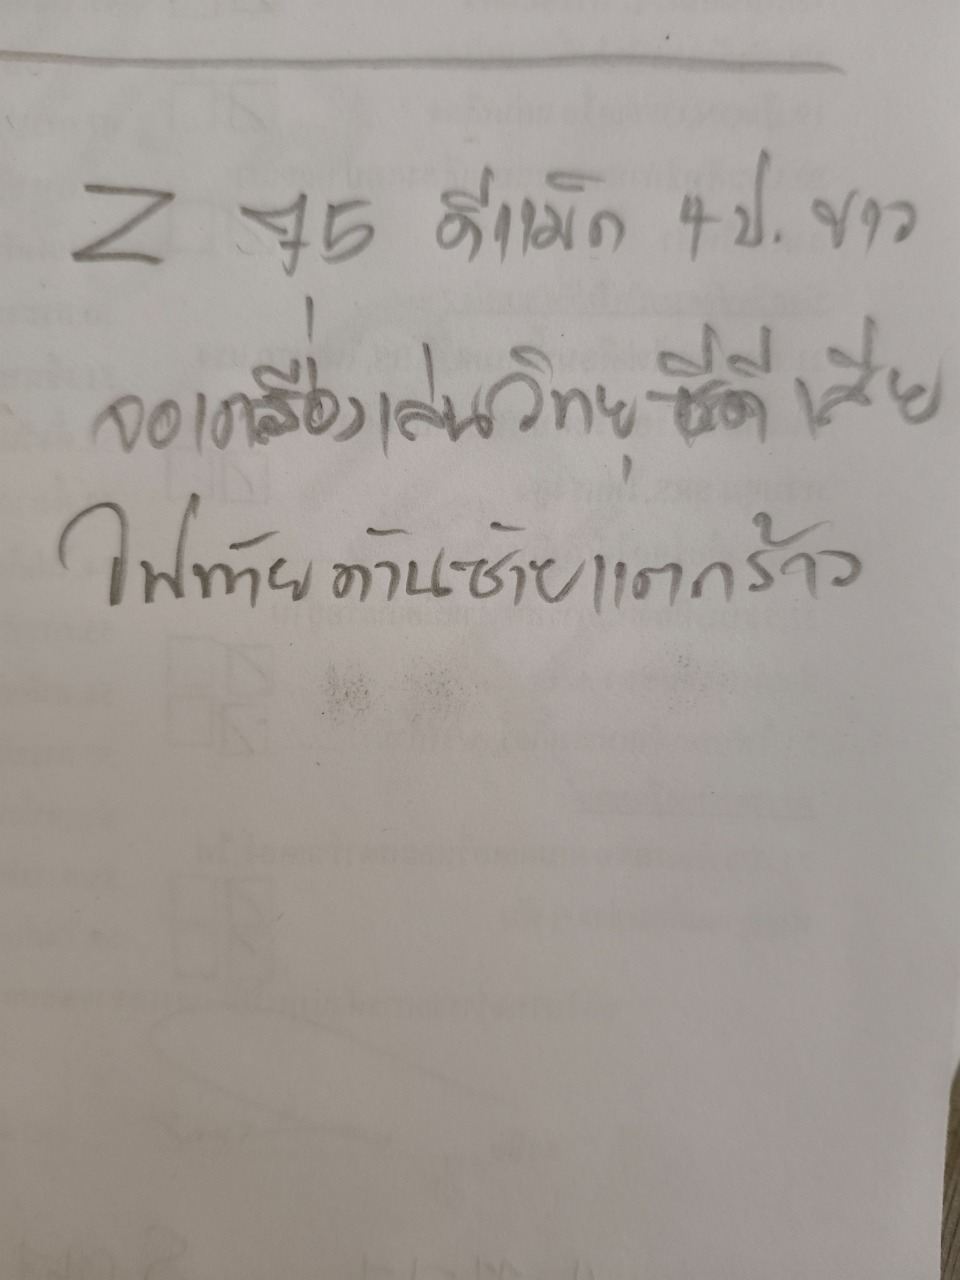 Z 75 ดีแม็ก 4ป. ขาว
จอเครื่องเล่นวิทยุ ซีดี เสีย
ไฟท้ายด้านซ้ายแตกร้าว